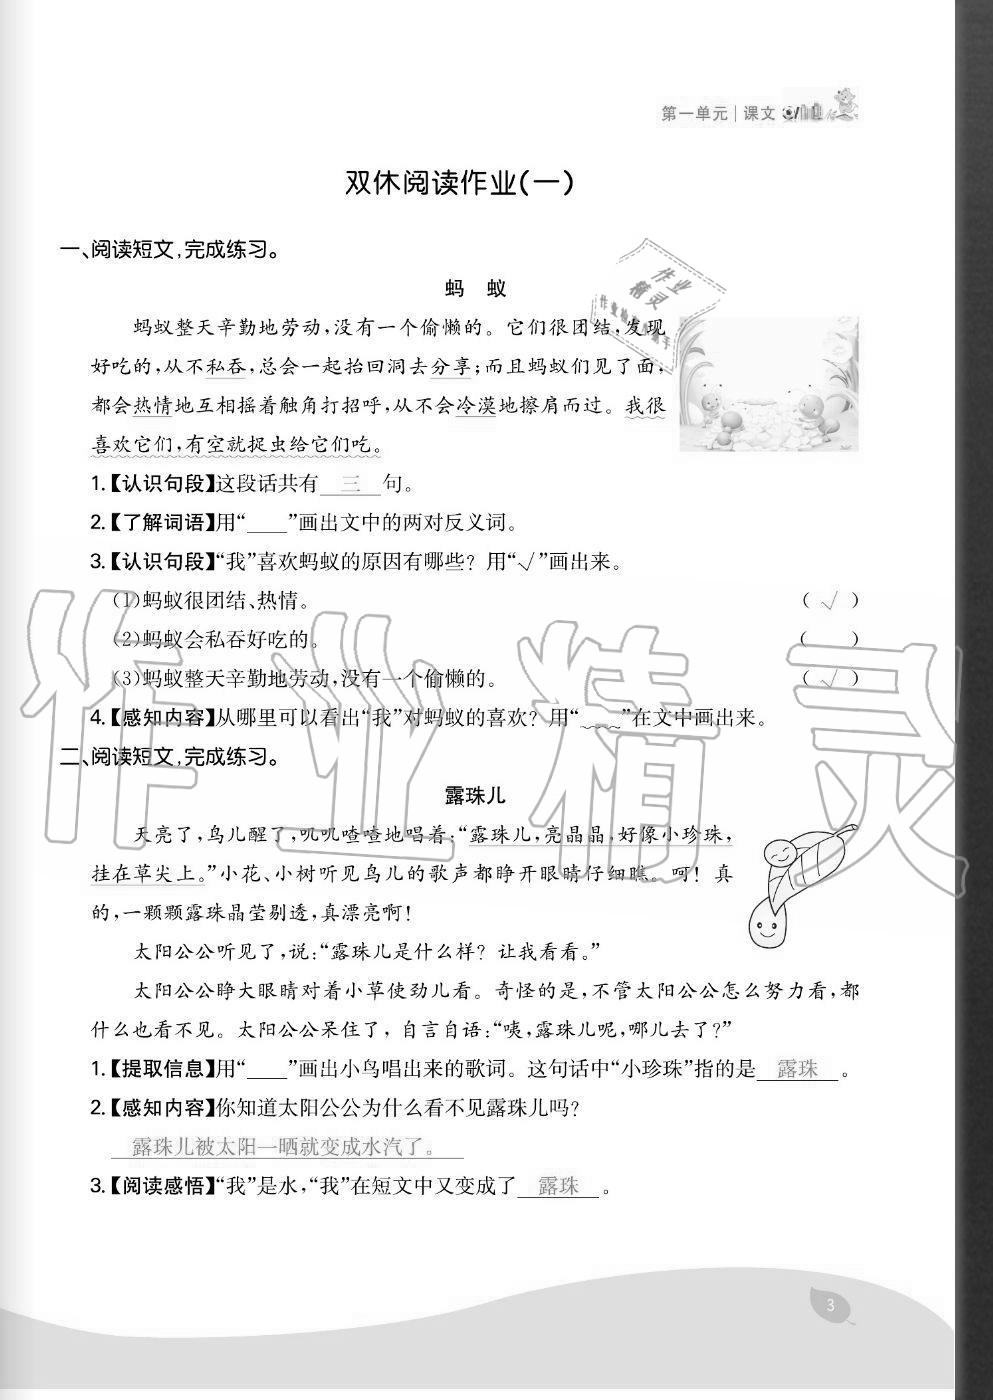 第一单元|课文
双休阅读作业(一)
一、阅读短文,完成练习。
蚂 蚁
蚂蚁整天辛勤地劳动,没有一个偷懒的。它们很团结,发现
好吃的,从不私吞,总会一起抬回洞去分享;而且蚂蚁们见了面,
都会热情地互相摇着触角打招呼,从不会冷漠地擦肩而过。我很
喜欢它们,有空就捉虫给它们吃。
1.【认识句段】这段话共有 三 句。
2.【了解词语】用“____”画出文中的两对反义词。
3.【认识句段】“我”喜欢蚂蚁的原因有哪些?用“√”画出来。
(1)蚂蚁很团结、热情。 ( √ )
(2)蚂蚁会私吞好吃的。 ( )
(3)蚂蚁整天辛勤地劳动,没有一个偷懒的。 ( √ )
4.【感知内容】从哪里可以看出“我”对蚂蚁的喜欢?用“﹏﹏”在文中画出来。
二、阅读短文,完成练习。
露珠儿
天亮了,鸟儿醒了,叽叽喳喳地唱着:“露珠儿,亮晶晶,好像小珍珠,
挂在草尖上。”小花、小树听见鸟儿的歌声都睁开眼睛仔细瞧。呵!真
的,一颗颗露珠晶莹剔透,真漂亮啊!
太阳公公听见了,说:“露珠儿是什么样?让我看看。”
太阳公公睁大眼睛对着小草使劲儿看。奇怪的是,不管太阳公公怎么努力看,都
什么也看不见。太阳公公呆住了,自言自语:“咦,露珠儿呢,哪儿去了?”
1.【提取信息】用“____”画出小鸟唱出来的歌词。这句话中“小珍珠”指的是 露珠 。
2.【感知内容】你知道太阳公公为什么看不见露珠儿吗?
露珠儿被太阳一晒就变成水汽了。
3.【阅读感悟】“我”是水,“我”在短文中又变成了 露珠 。
3
作业精灵
作业
精灵